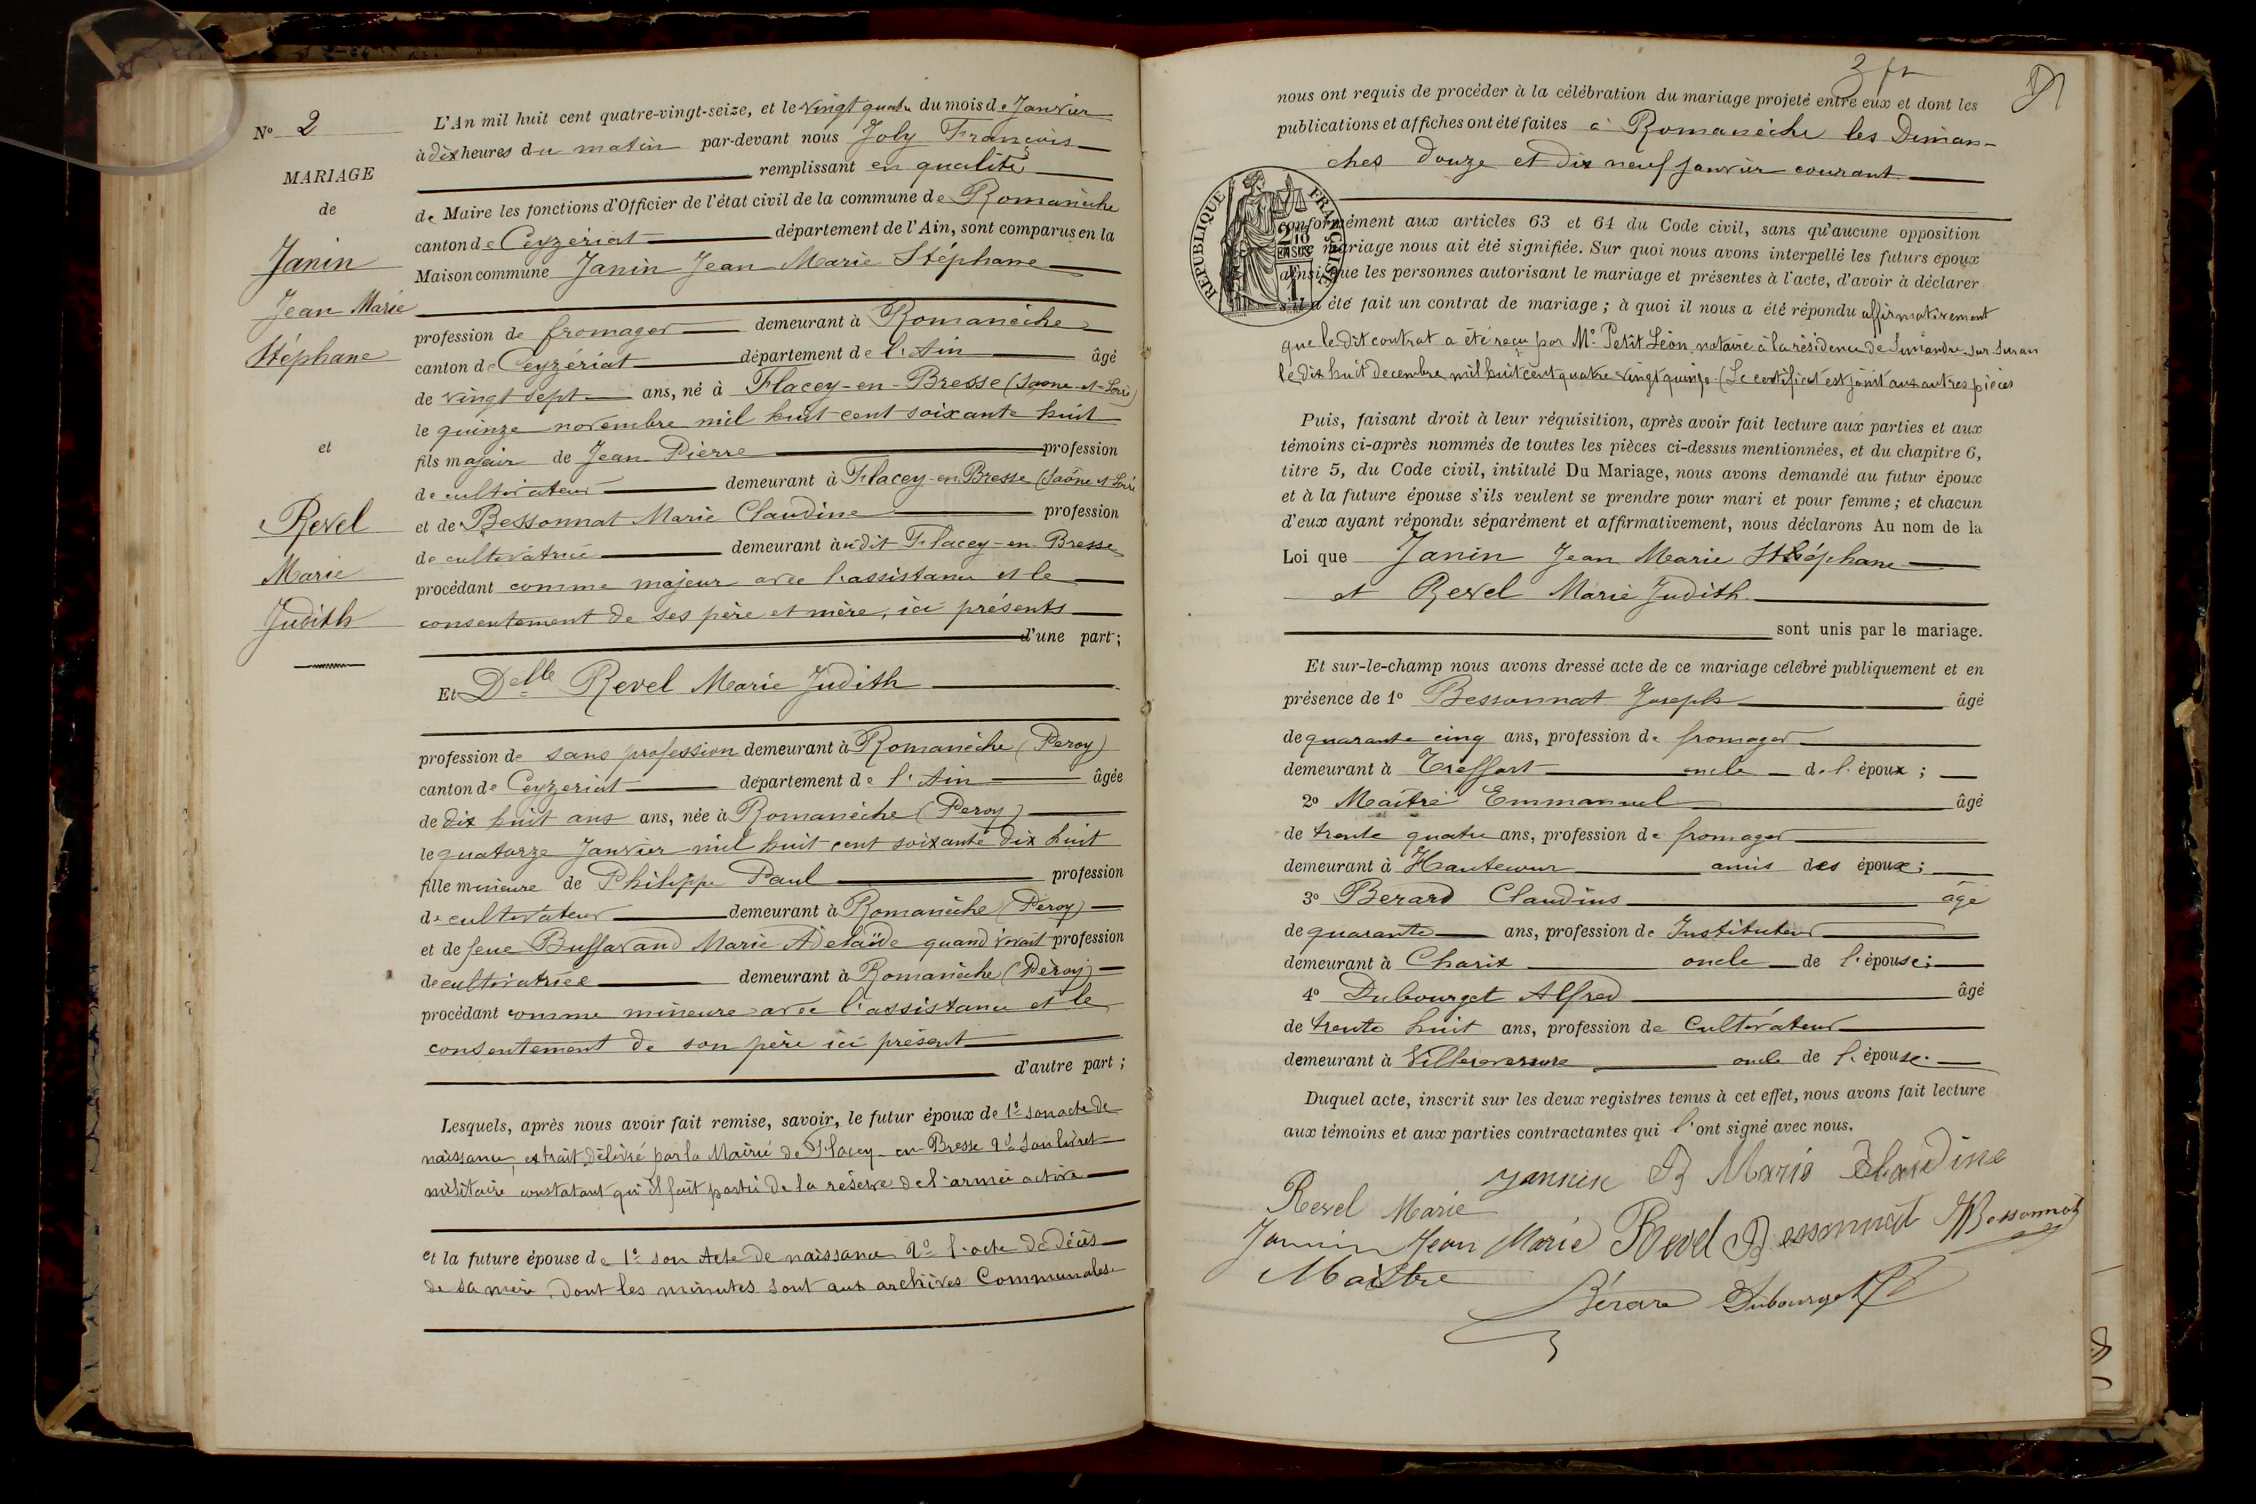 N° 2
MARIAGE
de
Janin
Jean Marie
Stéphane
et
Revel
Marie
Judith
L'An mil huit cent quatre-vingt-seize, et le vingt quatre du mois de Janvier
à dix heures du matin par-devant nous Joly François
remplissant en qualité
de Maire les fonctions d'Officier de l'état civil de la commune de Romanèche
canton de Ceyzériat département de l'Ain, sont comparus en la
Maison commune Janin Jean Marie Stéphane
profession de fromager demeurant à Romanèche
canton de Ceyzériat département de l'Ain âgé
de vingt sept ans, né à Flacey-en-Bresse (Saone-et-Loire)
le quinze novembre mil huit cent soixante huit
fils majeur de Jean Pierre profession
de cultivateur demeurant à Flacey-en-Bresse (Saône et Loire
et de Bessonnat Marie Claudine profession
de cultivatrice demeurant àudit Flacey-en-Bresse
procédant comme majeur avec l'assistance et le
consentement de ses père et mère, ici présents
d'une part;
Et Delle Revel Marie Judith
profession de sans profession demeurant à Romanèche (Peroy)
canton de Ceyzeriat département de l'Ain âgée
de dix huit ans ans, née à Romanèche (Peroy)
le quatorze Janvier mil huit cent soixante dix huit
fille mineure de Philippe Paul profession
de cultivateur demeurant à Romanèche (Peroy)
et de feue Buffavand Marie Adelaïde quand vivait profession
de cultivatrice demeurant à Romanèche (Pèroy)
procédant comme mineure avec l'assistance et le
consentement de son père ici présent
d'autre part;
Lesquels, après nous avoir fait remise, savoir, le futur époux de 1° son acte de
naissance, extrait délivré par la Mairie de Flacey-en-Bresse 2° son livret
militaire constatant qu'il fait partie de la réserve de l'armée active
et la future épouse de 1° son Acte de naissance 2° l'acte de décès
de sa mère, dont les minutes sont aux archives Communales
nous ont requis de procéder à la célébration du mariage projeté entre eux et dont les
publications et affiches ont été faites à Romanèche les Diman-
ches douze et dix neuf janvier courant
RÉPUBLIQUE FRANÇAISE
conformément aux articles 63 et 64 du Code civil, sans qu'aucune opposition
mariage nous ait été signifiée. Sur quoi nous avons interpellé les futurs époux
ainsi que les personnes autorisant le mariage et présentes à l'acte, d'avoir à déclarer
s'il a été fait un contrat de mariage; à quoi il nous a été répondu affirmativement
que le dit contrat a été reçu par Me Petit Léon, notaire à la résidence de Simandre-sur-Suran
le dix huit decembre mil huit cent quatre vingt quinze (Le certificat est joint aux autres pièces
Puis, faisant droit à leur réquisition, après avoir fait lecture aux parties et aux
témoins ci-après nommés de toutes les pièces ci-dessus mentionnées, et du chapitre 6,
titre 5, du Code civil, intitulé Du Mariage, nous avons demandé au futur époux
et à la future épouse s'ils veulent se prendre pour mari et pour femme; et chacun
d'eux ayant répondu séparément et affirmativement, nous déclarons Au nom de la
Loi que Janin Jean Marie Stéphane
et Revel Marie Judith
sont unis par le mariage.
Et sur-le-champ nous avons dressé acte de ce mariage célébré publiquement et en
présence de 1° Bessonnat Joseph âgé
de quarante cinq ans, profession de fromager
demeurant à Treffort oncle de l'époux;
2° Maître Emmanuel âgé
de trente quatre ans, profession de fromager
demeurant à Hautecour amis des époux;
3° Berard Claudius âgé
de quarante ans, profession de Instituteur
demeurant à Charix oncle de l'épouse;
4° Dubourget Alfred âgé
de trente huit ans, profession de Cultivateur
demeurant à Villereversure oncle de l'épouse.
Duquel acte, inscrit sur les deux registres tenus à cet effet, nous avons fait lecture
aux témoins et aux parties contractantes qui l'ont signé avec nous.
Revel Marie Jannin B Marie Claudine
Jannin Jean Marie Revel Bessonnat JBessonnat
Maistre
Bérard Dubourget